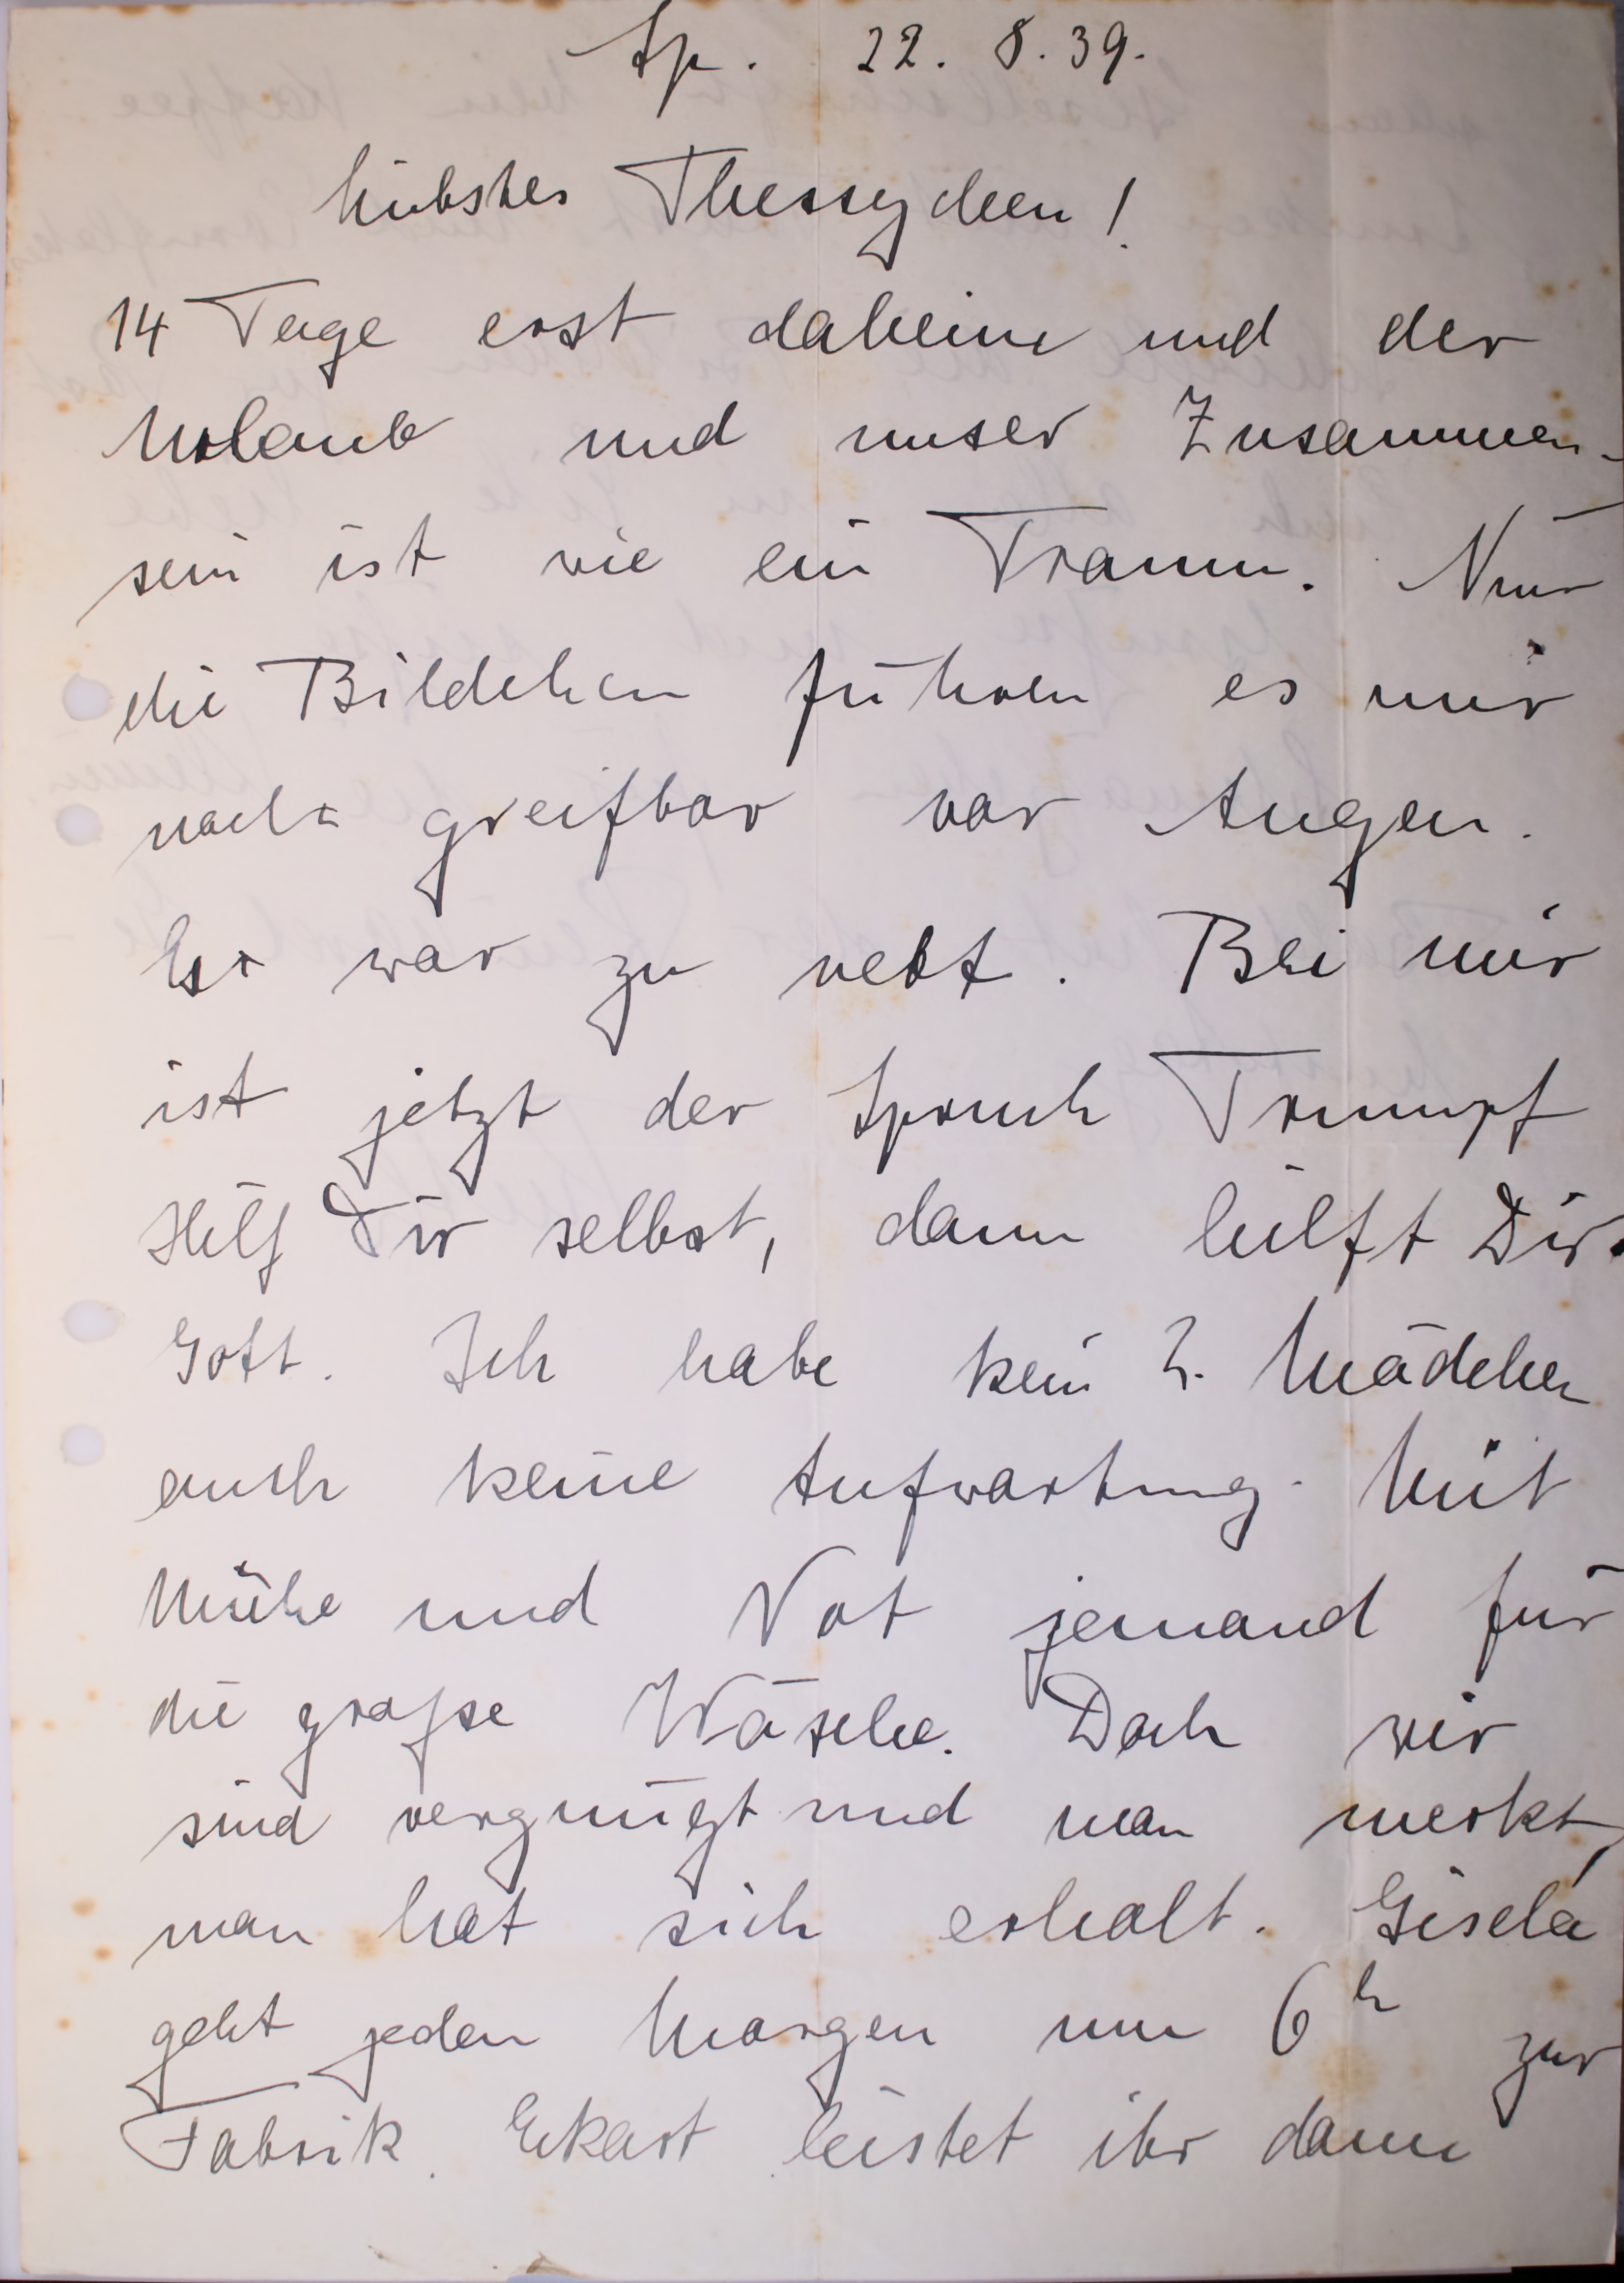 Sp. 22. 8. 39.
Liebstes Thessychen!
14 Tage erst daheim und der
Urlaub und unser Zusammen-
sein ist wie ein Traum. Nur
die Bildchen führen es mir
noch greifbar vor Augen.
Es war zu nett. Bei mir
ist jetzt der Spruch Trumpf
Hilf Dir selbst, dann hilft Dir
Gott. Ich habe kein 2. Mädchen
auch keine Aufwartung. Mit
Mühe und Not jemand für
die große Wäsche. Doch wir
sind vergnügt und man merkt,
man hat sich erholt. Gisela
geht jeden Morgen um 6 h zur
Fabrik. Ekart leistet ihr dann